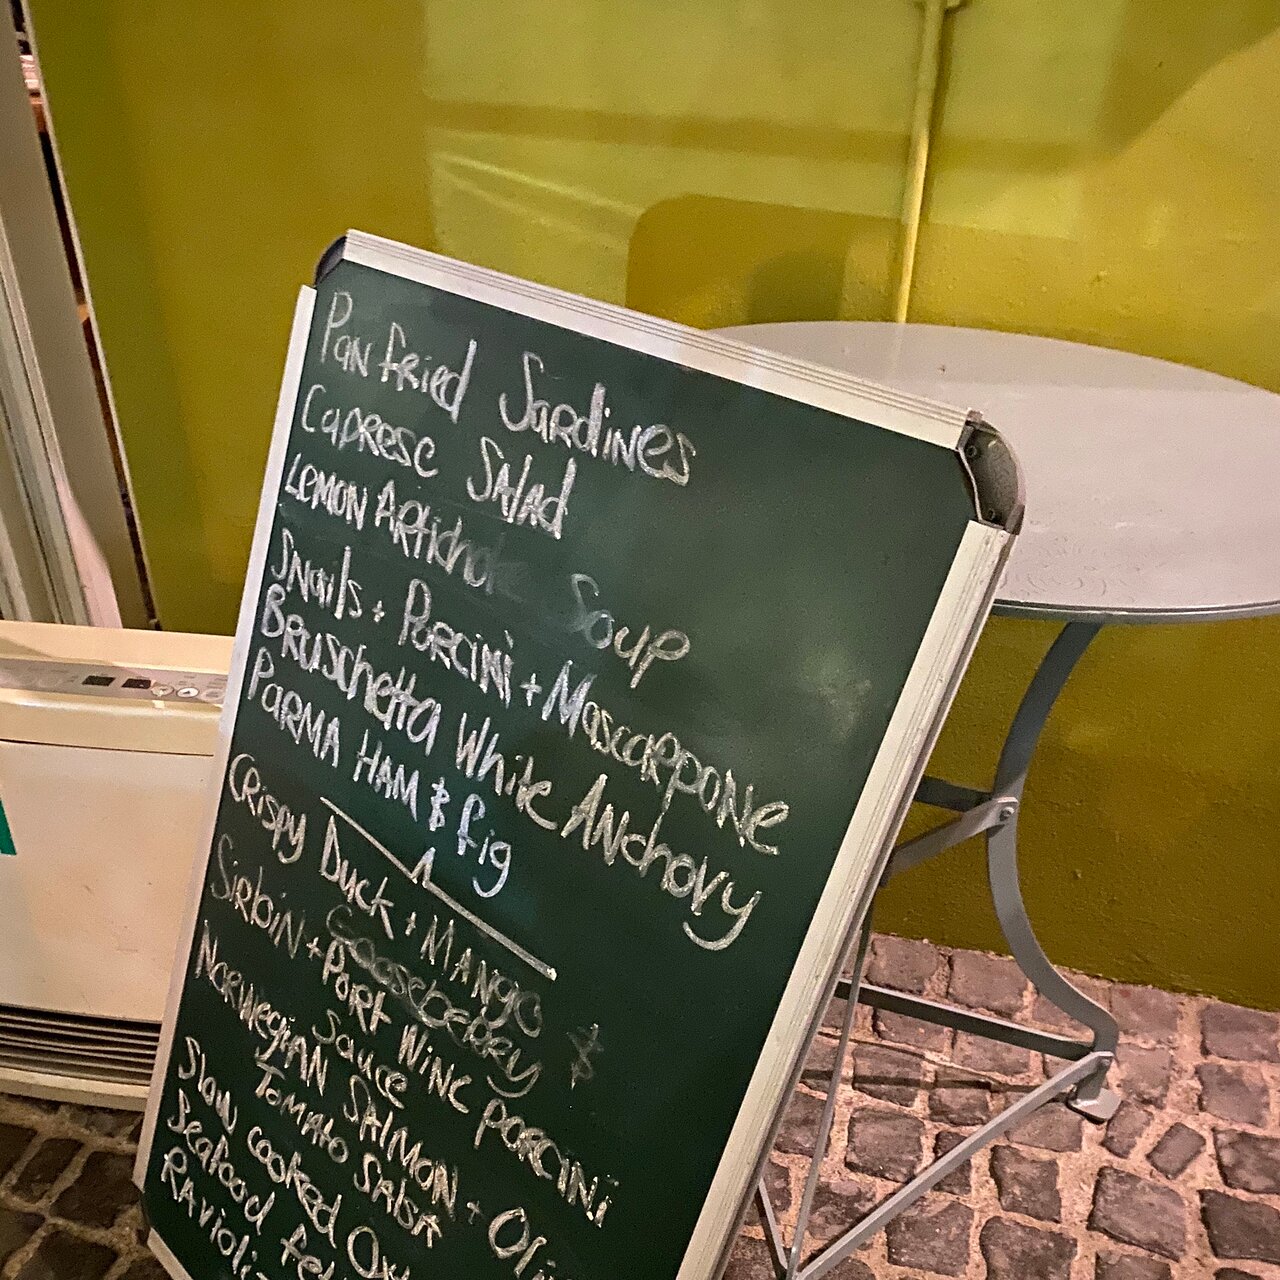 Pan fried Sardines
Caprese Salad
Lemon Artichoke Soup
Snails + Porcini + Mascarpone
Bruschetta White Anchovy
Parma Ham & fig
Crispy Duck + Mango
Gooseberry
Sirloin + Port Wine porcini
Sauce
Norwegian Salmon +
Tomato Salsa
Slow cooked
Seafood
Ravioli